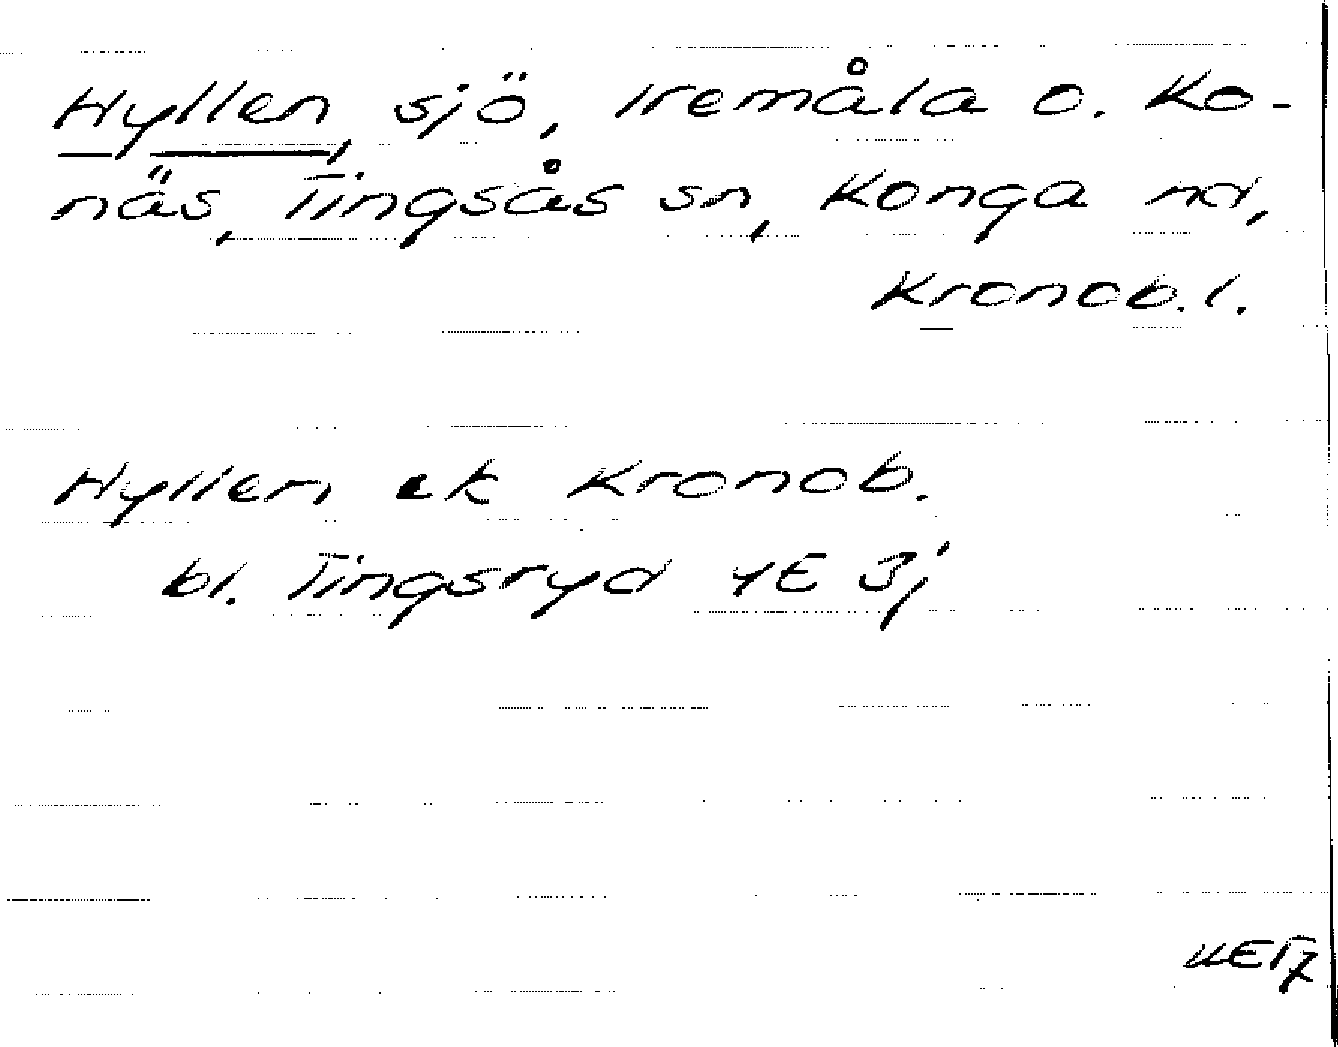 Hyllen, sjö, Iremåla o. Ko-
näs, Tingsås sn, Konga hd,
Kronob. l.
Hyllen ek Kronob.
bl. Tingsryd 4E 3j